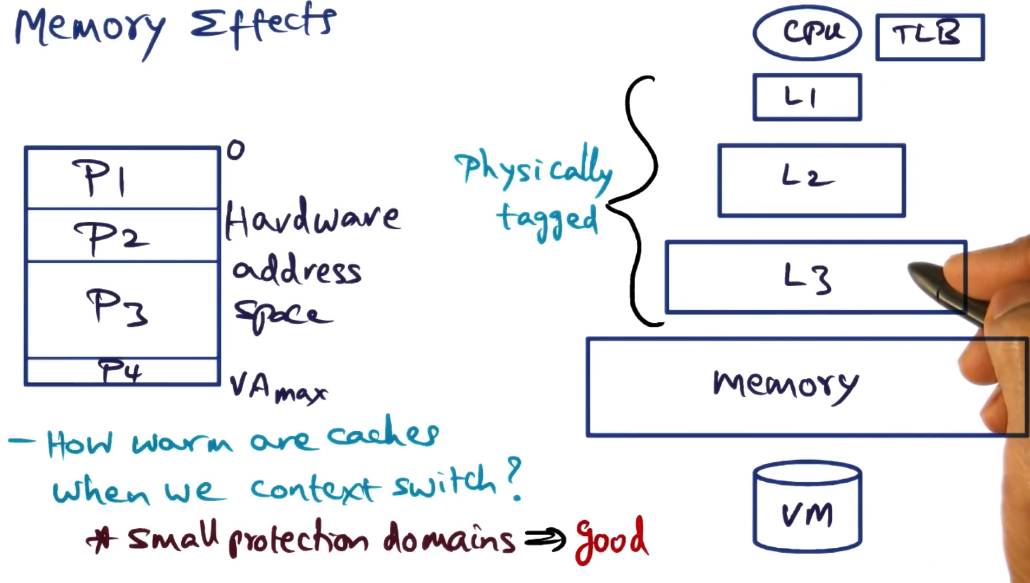 Memory Effects
P1
P2
P3
P4
0
Hardware
address
space
VAmax
- How warm are caches
when we context switch?
* small protection domains ⇒ good
Physically
tagged
CPU
TLB
L1
L2
L3
Memory
VM